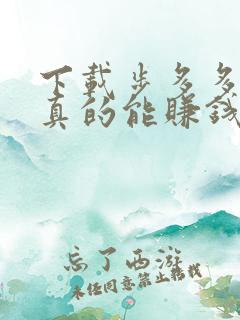 下载步多多
真的能赚钱
忘了西游
未经同意禁止转载